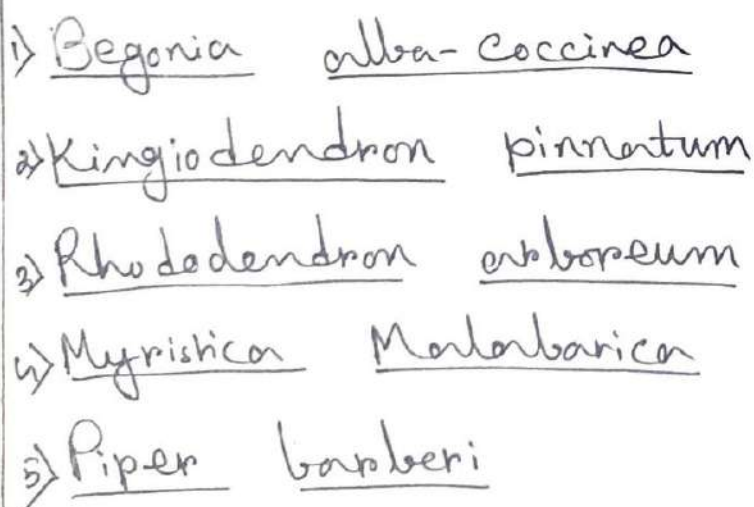 1) Begonia alba-coccinea
2) Kingiodendron pinnatum
3) Rhododendron arboreum
4) Myristica Malabarica
5) Piper barberi